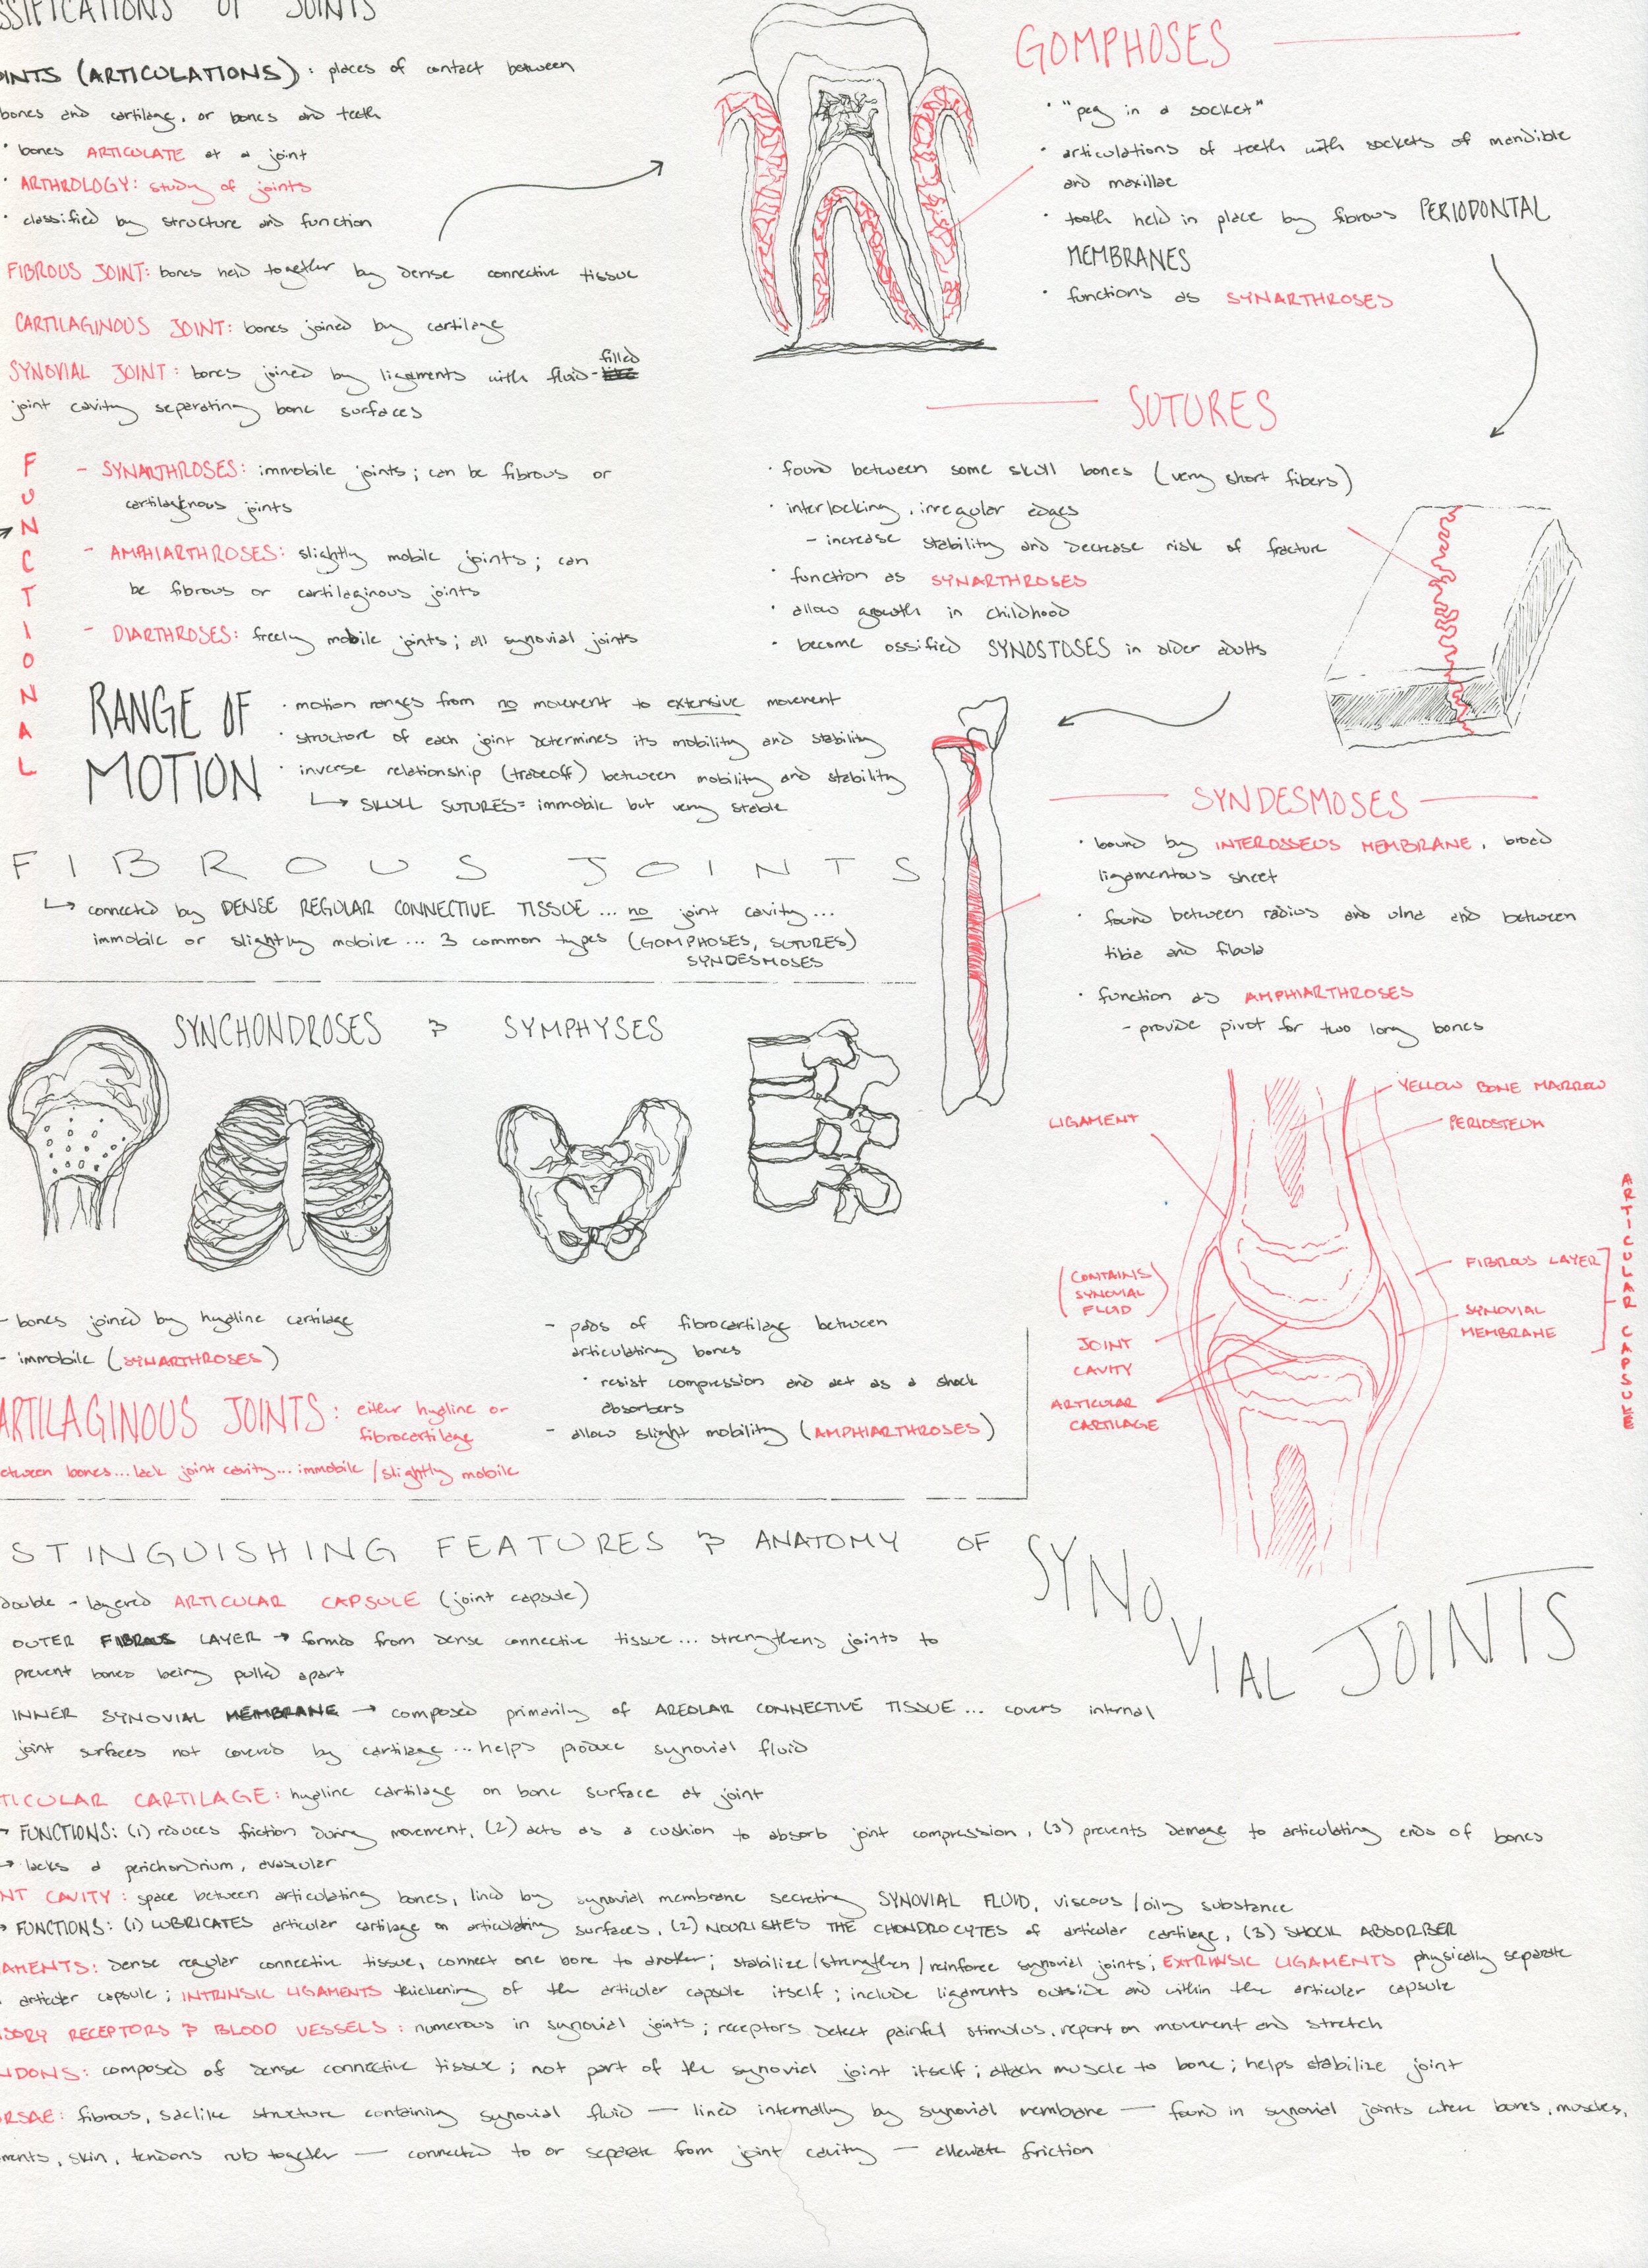 SSIFICATIONS OF JOINTS
OINTS (ARTICULATIONS): places of contact between
bones and cartilage, or bones and teeth
· bones ARTICULATE at a joint
· ARTHROLOGY: study of joints
· classified by structure and function
FIBROUS JOINT: bones held together by dense connective tissue
CARTILAGINOUS JOINT: bones joined by cartilage
SYNOVIAL JOINT: bones joined by ligaments with fluid-filled
joint cavity separating bone surfaces
FUNCTIONAL
- SYNARTHROSES: immobile joints; can be fibrous or
cartilagenous joints
- AMPHIARTHROSES: slightly mobile joints; can
be fibrous or cartilaginous joints
- DIARTHROSES: freely mobile joints; all synovial joints
RANGE OF
MOTION
· motion ranges from no movement to extensive movement
· structure of each joint determines its mobility and stability
· inverse relationship (tradeoff) between mobility and stability
↳ SKULL SUTURES = immobile but very stable
FIBROUS JOINTS
↳ connected by DENSE REGULAR CONNECTIVE TISSUE... no joint cavity...
immobile or slightly mobile... 3 common types (GOMPHOSES, SUTURES)
SYNDESMOSES
GOMPHOSES
· "peg in a socket"
· articulations of teeth with sockets of mandible
and maxillae
· tooth held in place by fibrous PERIODONTAL
MEMBRANES
· functions as SYNARTHROSES
SUTURES
· found between some skull bones (very short fibers)
· interlocking, irregular edges
- increase stability and decrease risk of fracture
· function as SYNARTHROSES
· allow growth in childhood
· become ossified SYNOSTOSES in older adults
SYNDESMOSES
· bound by INTEROSSEUS MEMBRANE, broad
ligamentous sheet
· found between radius and ulna and between
tibia and fibula
· function as AMPHIARTHROSES
- provide pivot for two long bones
SYNCHONDROSES & SYMPHYSES
- bones joined by hyaline cartilage
- immobile (SYNARTHROSES)
- pads of fibrocartilage between
articulating bones
· resist compression and act as a shock
absorbers
- allow slight mobility (AMPHIARTHROSES)
ARTILAGINOUS JOINTS: either hyaline or
fibrocartilage
etween bones...lack joint cavity...immobile/slightly mobile
LIGAMENT
YELLOW BONE MARROW
PERIOSTEUM
(CONTAINS
SYNOVIAL
FLUID)
JOINT
CAVITY
ARTICULAR
CARTILAGE
FIBROUS LAYER
SYNOVIAL
MEMBRANE
ARTICULAR CAPSULE
STINGUISHING FEATURES & ANATOMY OF SYNOVIAL JOINTS
double-layered ARTICULAR CAPSULE (joint capsule)
OUTER FIBROUS LAYER → formed from dense connective tissue... strengthens joints to
prevent bones being pulled apart
INNER SYNOVIAL MEMBRANE → composed primarily of AREOLAR CONNECTIVE TISSUE... covers internal
joint surfaces not covered by cartilage...helps produce synovial fluid
TICULAR CARTILAGE: hyaline cartilage on bone surface at joint
→ FUNCTIONS: (1) reduces friction during movement, (2) acts as a cushion to absorb joint compression, (3) prevents damage to articulating ends of bones
→ lacks a perichondrium, avascular
NT CAVITY: space between articulating bones, lined by synovial membrane secreting SYNOVIAL FLUID, viscous/oily substance
→ FUNCTIONS: (1) LUBRICATES articular cartilage on articulating surfaces, (2) NOURISHES THE CHONDROCYTES of articular cartilage, (3) SHOCK ABSORBER
AMENTS: dense regular connective tissue, connect one bone to another; stabilize/strengthen/reinforce synovial joints; EXTRINSIC LIGAMENTS physically separate
articular capsule; INTRINSIC LIGAMENTS thickening of the articular capsule itself; include ligaments outside and within the articular capsule
SORY RECEPTORS & BLOOD VESSELS: numerous in synovial joints; receptors detect painful stimulus, report on movement and stretch
NDONS: composed of dense connective tissue; not part of the synovial joint itself; attach muscle to bone; helps stabilize joint
RSAE: fibrous, saclike structure containing synovial fluid — lined internally by synovial membrane — found in synovial joints where bones, muscles,
ments, skin, tendons rub together — connected to or separate from joint cavity — alleviate friction